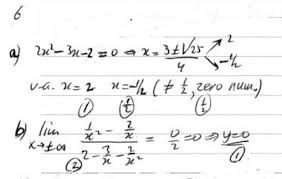 6
a) 2x² - 3x - 2 = 0 ⇒ x = (3 ± √25)/4 → 2, → -1/2
v.a. x = 2 x = -1/2 (≠ 1/2, zero num.)
① (1/2) (1/2)
b) lim x→±∞ (1/x² - 2/x)/(2 - 3/x - 2/x²) = 0/2 = 0 ⇒ y = 0
② ①